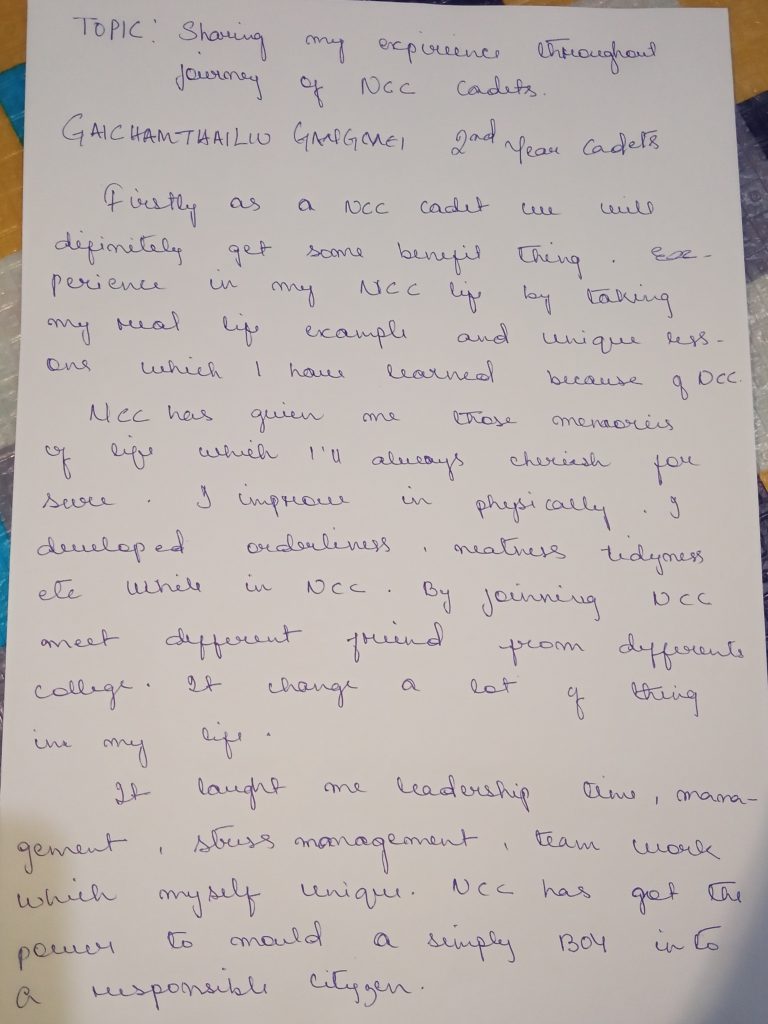 TOPIC: Sharing my expirience throughout
journey of NCC cadets.
GAICHAMTHAILIU GANGMEI 2nd Year Cadets
Firstly as a NCC cadet we will
difinitely get some benefit thing. Exe-
perience in my NCC life by taking
my real life example and unique less-
ons which I have learned because of NCC.
NCC has given me those memories
of life which I'll always cherish for
sure. I improve in physically. I
developed orderliness, neatness tidyness
etc While in NCC. By joinning NCC
meet different friend from differents
college. It change a lot of thing
in my life.
It taught me leadership time, mana-
gement, stress management, team work
which myself unique. NCC has got the
power to mould a simply BOY in to
a responsible cityzen.